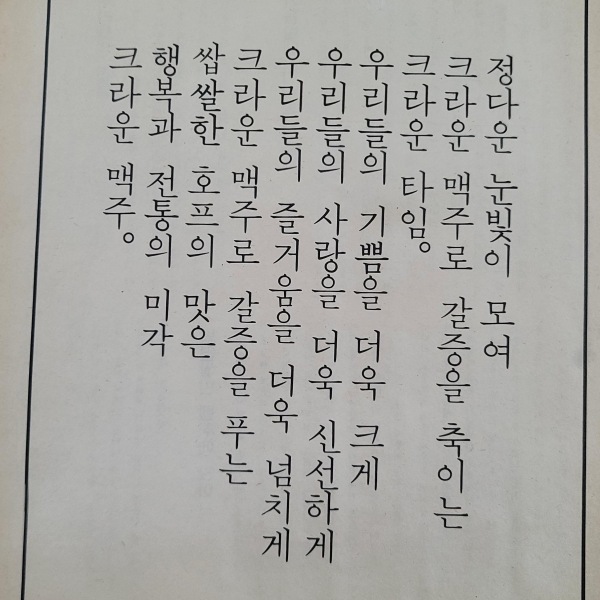 정다운 눈빛이 모여
크라운 맥주로 갈증을 축이는
크라운 타임。
우리들의 기쁨을 더욱 크게
우리들의 사랑을 더욱 신선하게
우리들의 즐거움을 더욱 넘치게
크라운 맥주로 갈증을 푸는
쌉쌀한 호프의 맛은
행복과 전통의 미각
크라운 맥주。